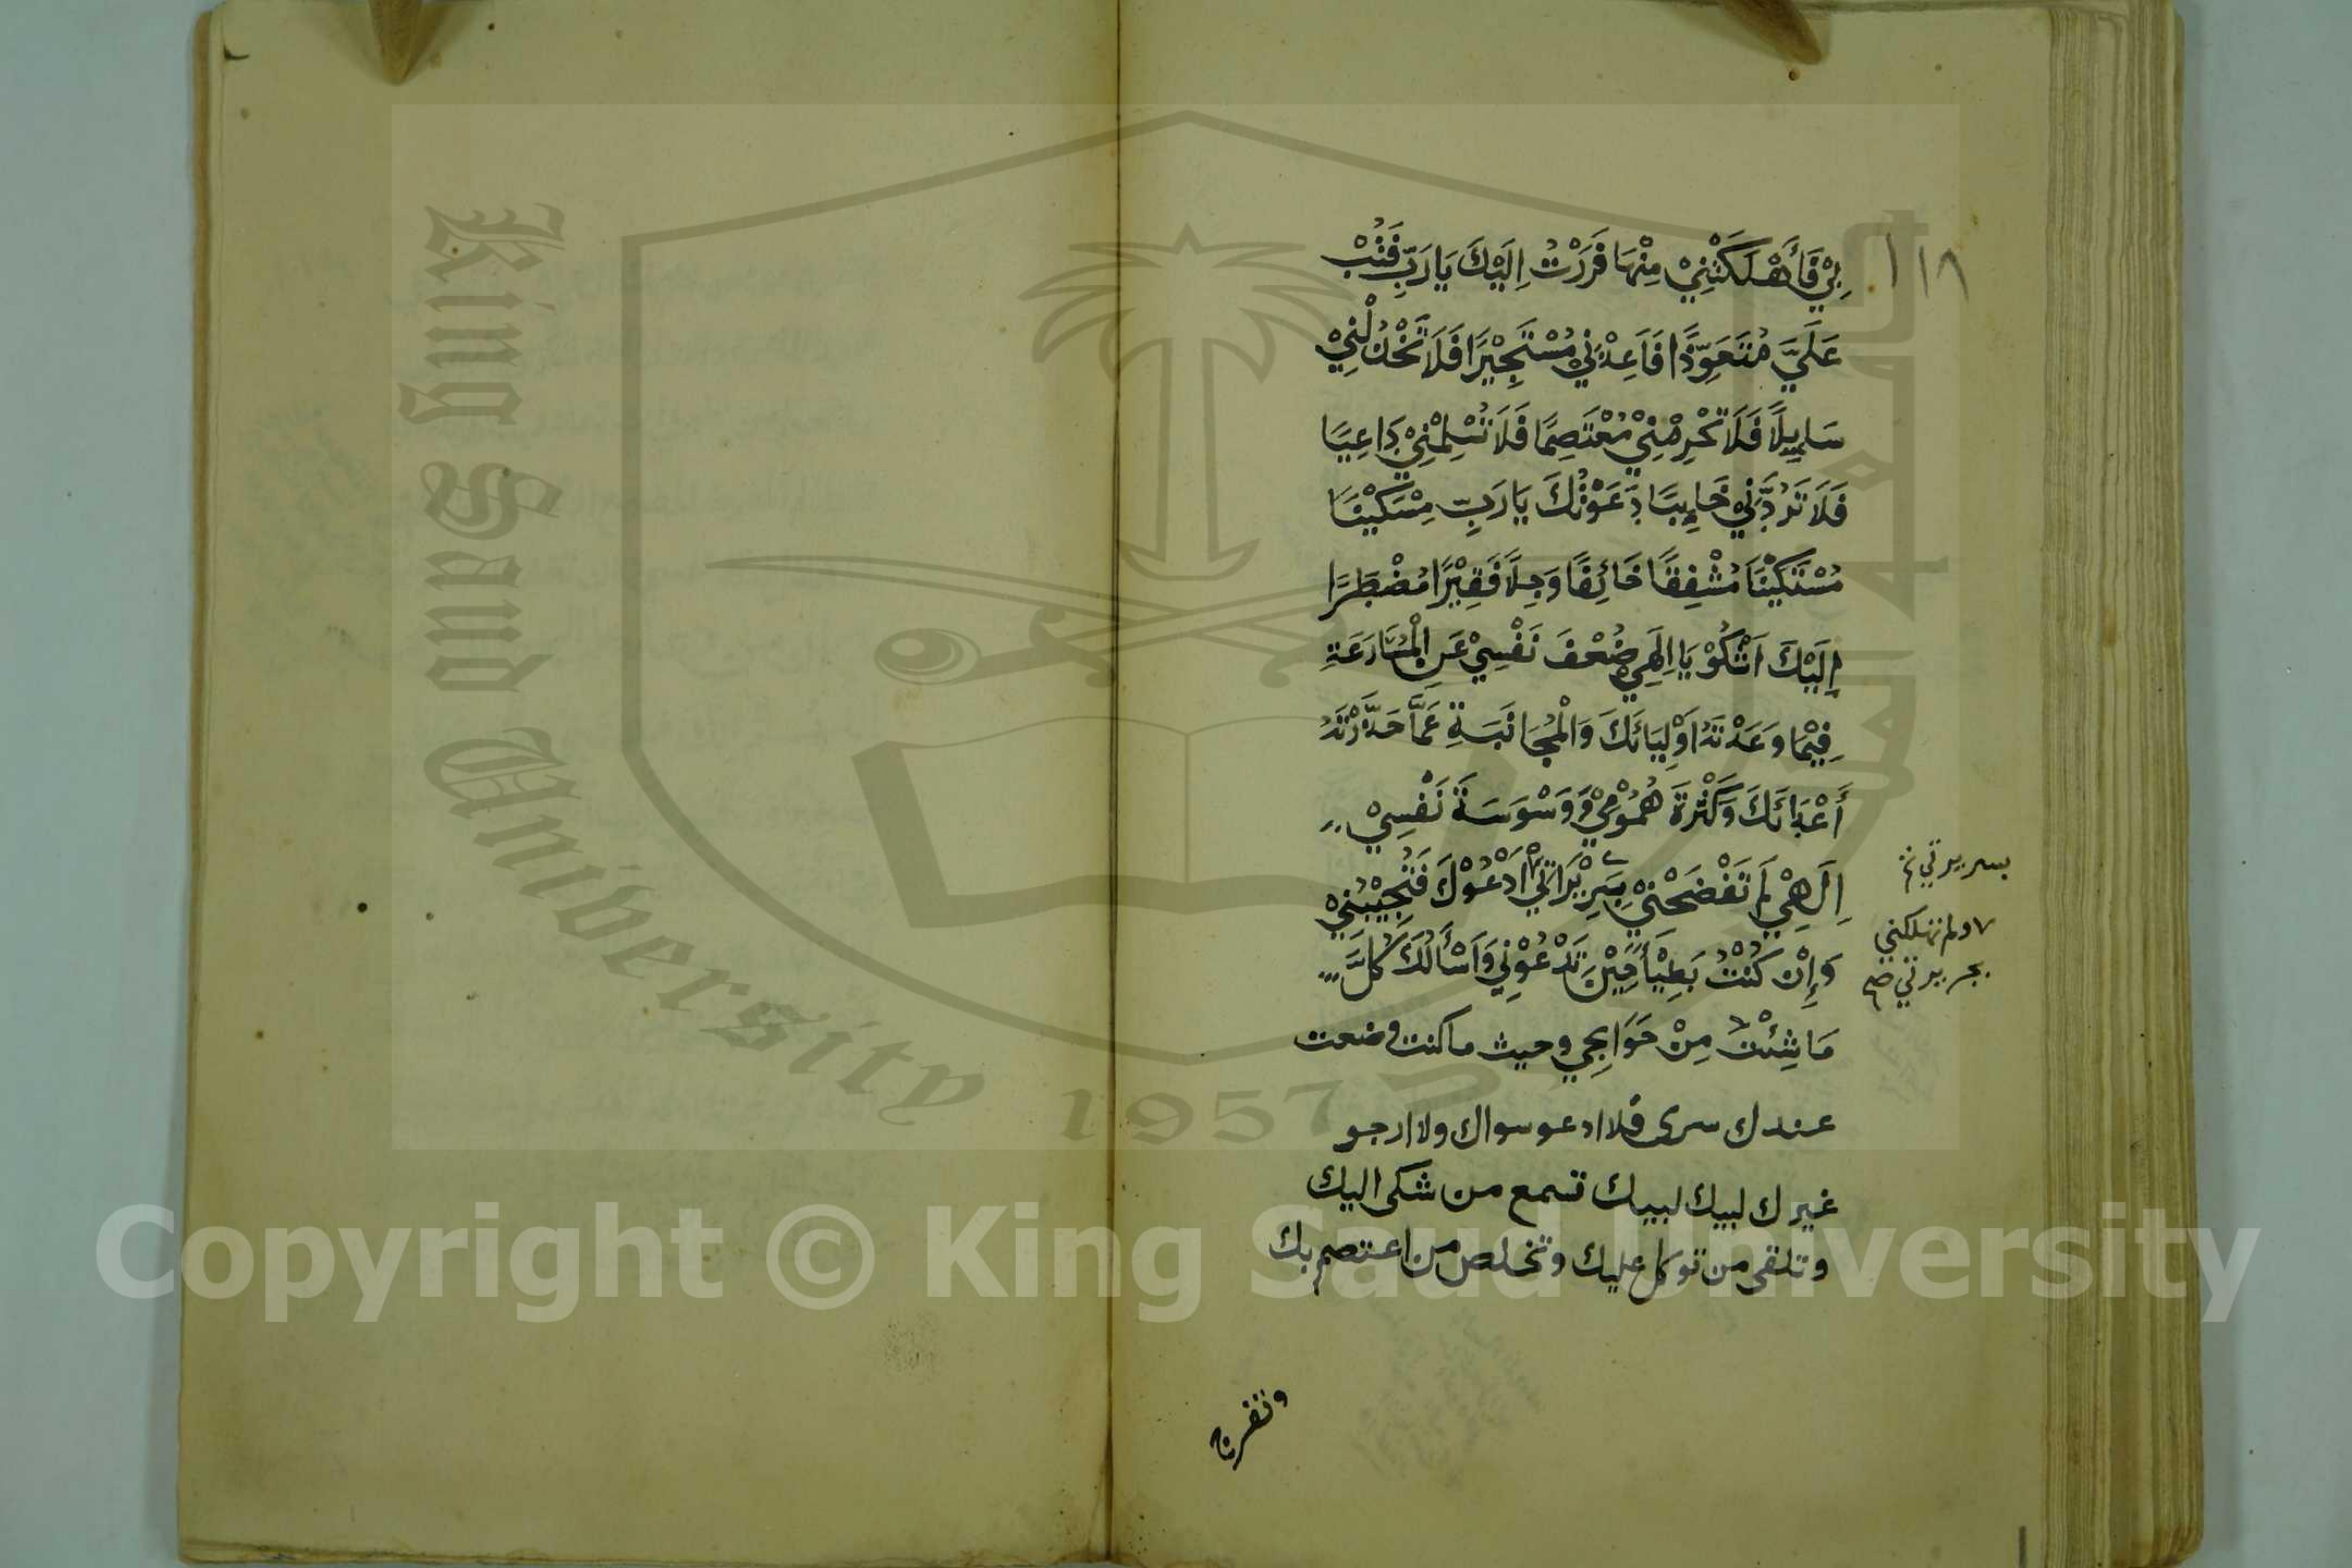 ١١٨
بِيْ فَأَهْلَكَتْنِيْ مِنْهَا فَرَرْتُ اِلَيْكَ يَا رَبِّ فَتُبْ
عَلَيَّ مُتَعَوِّذًا فَاَعِذْنِيْ مُسْتَجِيْرًا فَلَا تَخْذُلْنِيْ
سَايِلًا فَلَا تَحْرِمْنِيْ مُعْتَصِمًا فَلَا تُسْلِمْنِيْ دَاعِيًا
فَلَا تَرُدَّنِيْ خَايِبًا دَعَوْتُكَ يَا رَبِّ مِسْكِيْنًا
مُسْتَكِيْنًا مُشْفِقًا خَائِفًا وَجِلًا فَقِيْرًا مُضْطَرًّا
اِلَيْكَ اَشْكُوْ يَا اِلٰهِيْ ضُعْفَ نَفْسِيْ عَنِ الْمُسَارَعَةِ
فِيْمَا وَعَدْتَهُ اَوْلِيَائَكَ وَالْمُجَانَبَةِ عَمَّا حَذَّرْتَهُ
أَعْدَائَكَ وَكَثْرَةَ هُمُوْمِيْ وَوَسْوَسَةَ نَفْسِيْ
اِلٰهِيْ لَمْ تَفْضَحْنِيْ بِسَرِيْرَاتِيْ اَدْعُوْكَ فَتُجِيْبُنِيْ
وَإِنْ كُنْتُ بَطِيْأً حِيْنَ تَدْعُوْنِيْ وَاَسْأَلُكَ كُلَّ
مَا شِئْتُ مِنْ حَوَايِجِي وحيث ما كنت وضعت
عندك سرى فلا ادعو سواك ولا ارجو
غيرك لبيك لبيك تسمع من شكى اليك
وتلقى من توكل عليك وتخلص من اعتصم بك
بسريرتي
ولم تهلكني
بجريرتي صح